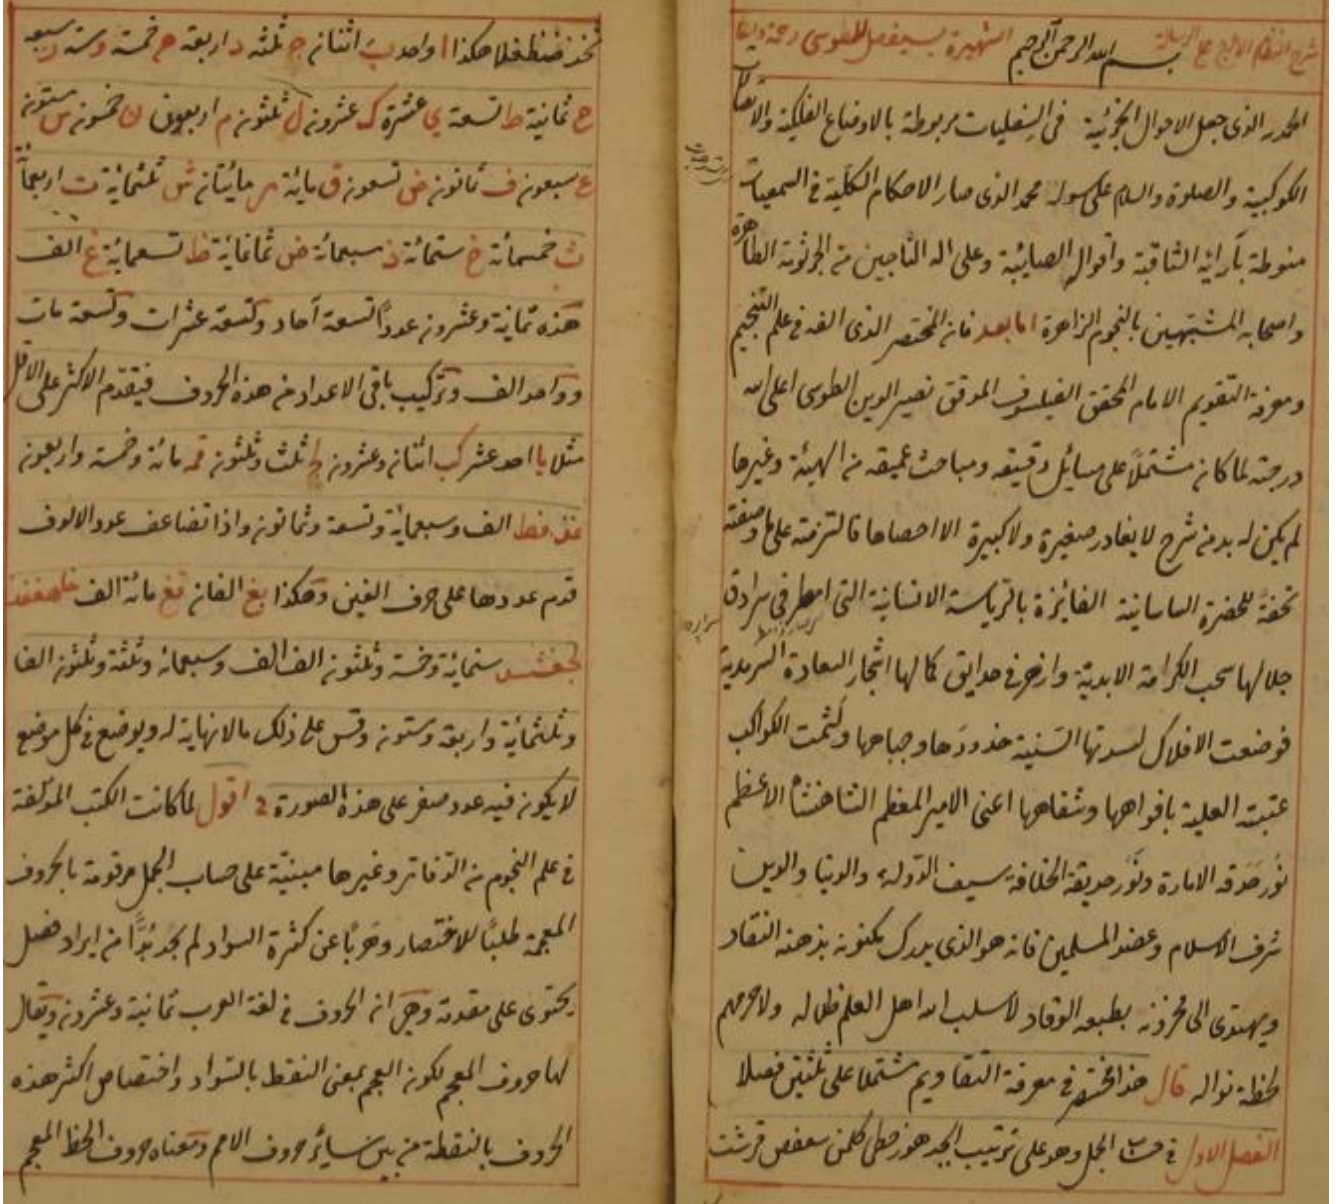 شرح النظام الاعرج على الرسالة
بسم الله الرحمن الرحيم
الشهيرة بسيفصل للطوسى
الحمد لله الذى جعل الاحوال الجزئية فى السفليات مربوطة بالاوضاع الفلكية والاتصالات
الكوكبية والصلوة والسلام على رسوله محمد الذى صار الاحكام الكلية فى السمعيات
منوطة بآرائه الثاقبة واقواله الصايبة وعلى اله الناجين من الجرثومة الطاهرة
واصحابه المشتبهين بالنجوم الزاهرة اما بعد فان المختصر الذى الفه فى علم التنجيم
ومعرفة التقويم الامام المحقق الفيلسوف الموفق نصير الدين الطوسى اعلى الله
درجته لما كان مشتملا على مسائل دقيقه ومباحث عميقه من الهيئة وغيرها
لم يكن له بد من شرح لا يغادر صغيرة ولا كبيرة الا احصاها فالتزمته على ما وصفته
تحفة للحضرة الساسانية الفائزة بالرياسة الانسانية التى امطر فى سرادق
جلالها سحب الكرامة الابدية وازهر فى حدايق كمالها اشجار السعادة السرمدية
فوضعت الافلاك لسدتها السنية خدودها وجباهها ولثمت الكواكب
عتبته العلية بافواهها وشفاهها اعنى الامير المعظم الشاهنشاه الاعظم
نور حدقه الامارة ونور حديقة الخلافة سيف الدولة والدنيا والدين
شرف الاسلام وعضد المسلمين فانه هو الذى يدرك مكنونه بذهنه النقاد
ويهتدى الى مخزونه بطبعه الوقاد لا سلب الله اهل العلم ظلاله ولا حرمهم
لحظة نواله قال هذا مختصر فى معرفة التقاويم مشتملا على ثلثين فصلا
الفصل الاول فى حساب الجمل وهو على ترتيب ابجد هوز حطى كلمن سعفص قرشت
ثخذ ضظغ هكذا ا واحد ب اثنان ج ثلثه د اربعة ه خمسة و سته ز سبعه
ح ثمانية ط تسعة ي عشرة ك عشرون ل ثلثون م اربعون ن خمسون س ستون
ع سبعون ف ثمانون ص تسعون ق مائة ر مايتان ش ثلثمائة ت اربعمائة
ث خمسمائة خ ستمائة ذ سبعمائة ض ثمانمائة ظ تسعمائة غ الف
هذه ثمانية وعشرون عددا تسعة آحاد وتسعة عشرات وتسعة مات
وواحد الف وتركيب باقى الاعداد من هذه الحروف فيتقدم الاكثر على الاقل
مثلا يا احد عشر كب اثنان وعشرون لج ثلث وثلثون قمه مائة وخمسة واربعون
غذفط الف وسبعماية وتسعة وثمانون واذا تضاعف عدد الالوف
قدم عددها على حرف الغين وهكذا بغ الفان قغ مائة الف
ستمائة وخمسة وثلثون الف الف وسبعمائه وثلثة وثلثون الفا
وثلثمائة واربعة وستون وقس على ذلك مالا نهاية له ويوضع فى كل موضع
لا يكون فيه عدد صفر على هذه الصورة اقول لما كانت الكتب المؤلفة
فى علم النجوم من الدفاتر وغيرها مبنية على حساب الجمل مرقومة بالحروف
المعجمة طلبا للاختصار وهربا عن كثرة السواد لم نجد بدا من ايراد فصل
يحتوى على مقدمة وهى ان الحروف فى لغة العرب ثمانية وعشرون ويقال
لها حروف المعجم لكون العجم بمعنى النقط بالسواد واختصاص اكثر هذه
الحروف بالنقطة من بين سائر حروف الامم ومعناه حروف الخط المعجم